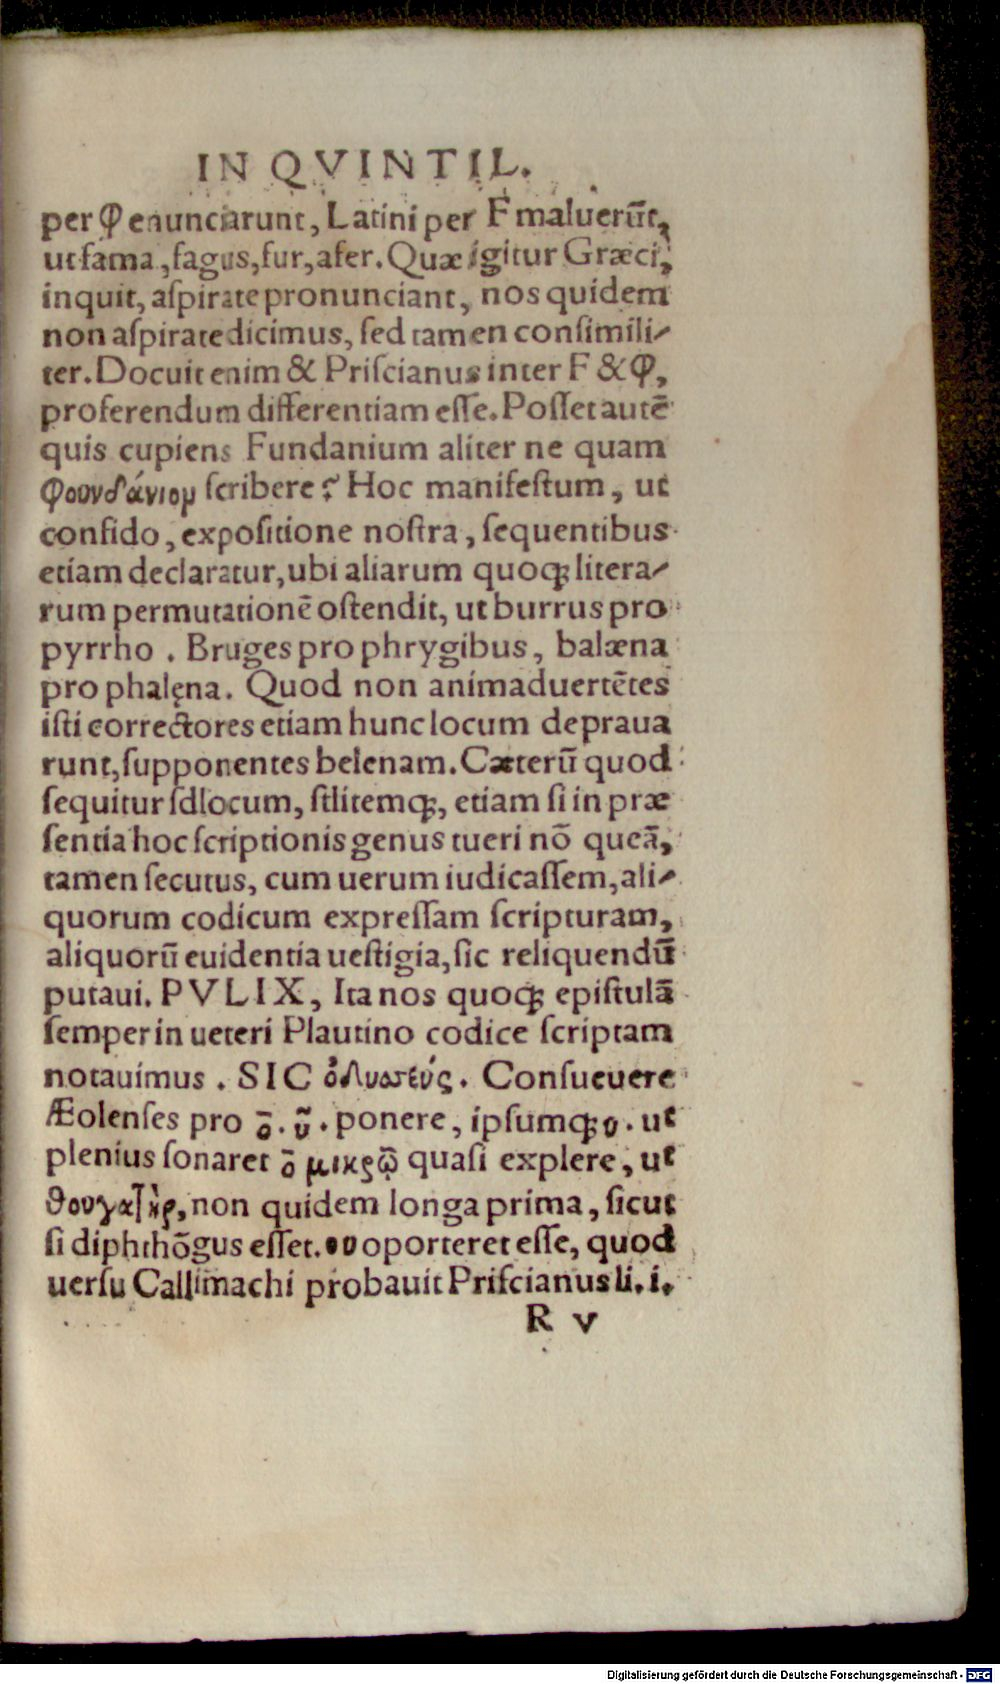 IN QVINTIL.
per φ enunciarunt, Latini per F maluerūt,
ut fama, fagus, fur, afer. Quæ igitur Græci,
inquit, aſpirate pronunciant, nos quidem
non aſpirate dicimus, ſed tamen conſimili-
ter. Docuit enim & Priſcianus inter F & φ,
proferendum differentiam eſſe. Poſſet autē
quis cupiens Fundanium aliter ne quam
φουνδάνιομ ſcribere? Hoc manifeſtum, ut
confido, expoſitione noſtra, ſequentibus
etiam declaratur, ubi aliarum quoq; litera-
rum permutationē oſtendit, ut burrus pro
pyrrho. Bruges pro phrygibus, balæna
pro phalęna. Quod non animaduertētes
iſti correctores etiam hunc locum depraua
runt, ſupponentes belenam. Cæterū quod
ſequitur ſdlocum, ſtlitemq;, etiam ſi in præ
ſentia hoc ſcriptionis genus tueri nō queā,
tamen ſecutus, cum uerum iudicaſſem, ali-
quorum codicum expreſſam ſcripturam,
aliquorū euidentia ueſtigia, ſic reliquendū
putaui. PVLIX, Ita nos quoq; epiſtulā
ſemper in ueteri Plautino codice ſcriptam
notauimus. SIC ὀλυστεύς. Conſueuere
Æolenſes pro ο̄. υ̃. ponere, ipſumq; υ. ut
plenius ſonaret ο̄ μικρῶ quaſi explere, ut
θουγατὴρ, non quidem longa prima, ſicut
ſi diphthōgus eſſet. ου oporteret eſſe, quod
uerſu Callimachi probauit Priſcianus li. i.
R v
Digitalisierung gefördert durch die Deutsche Forschungsgemeinschaft - DFG